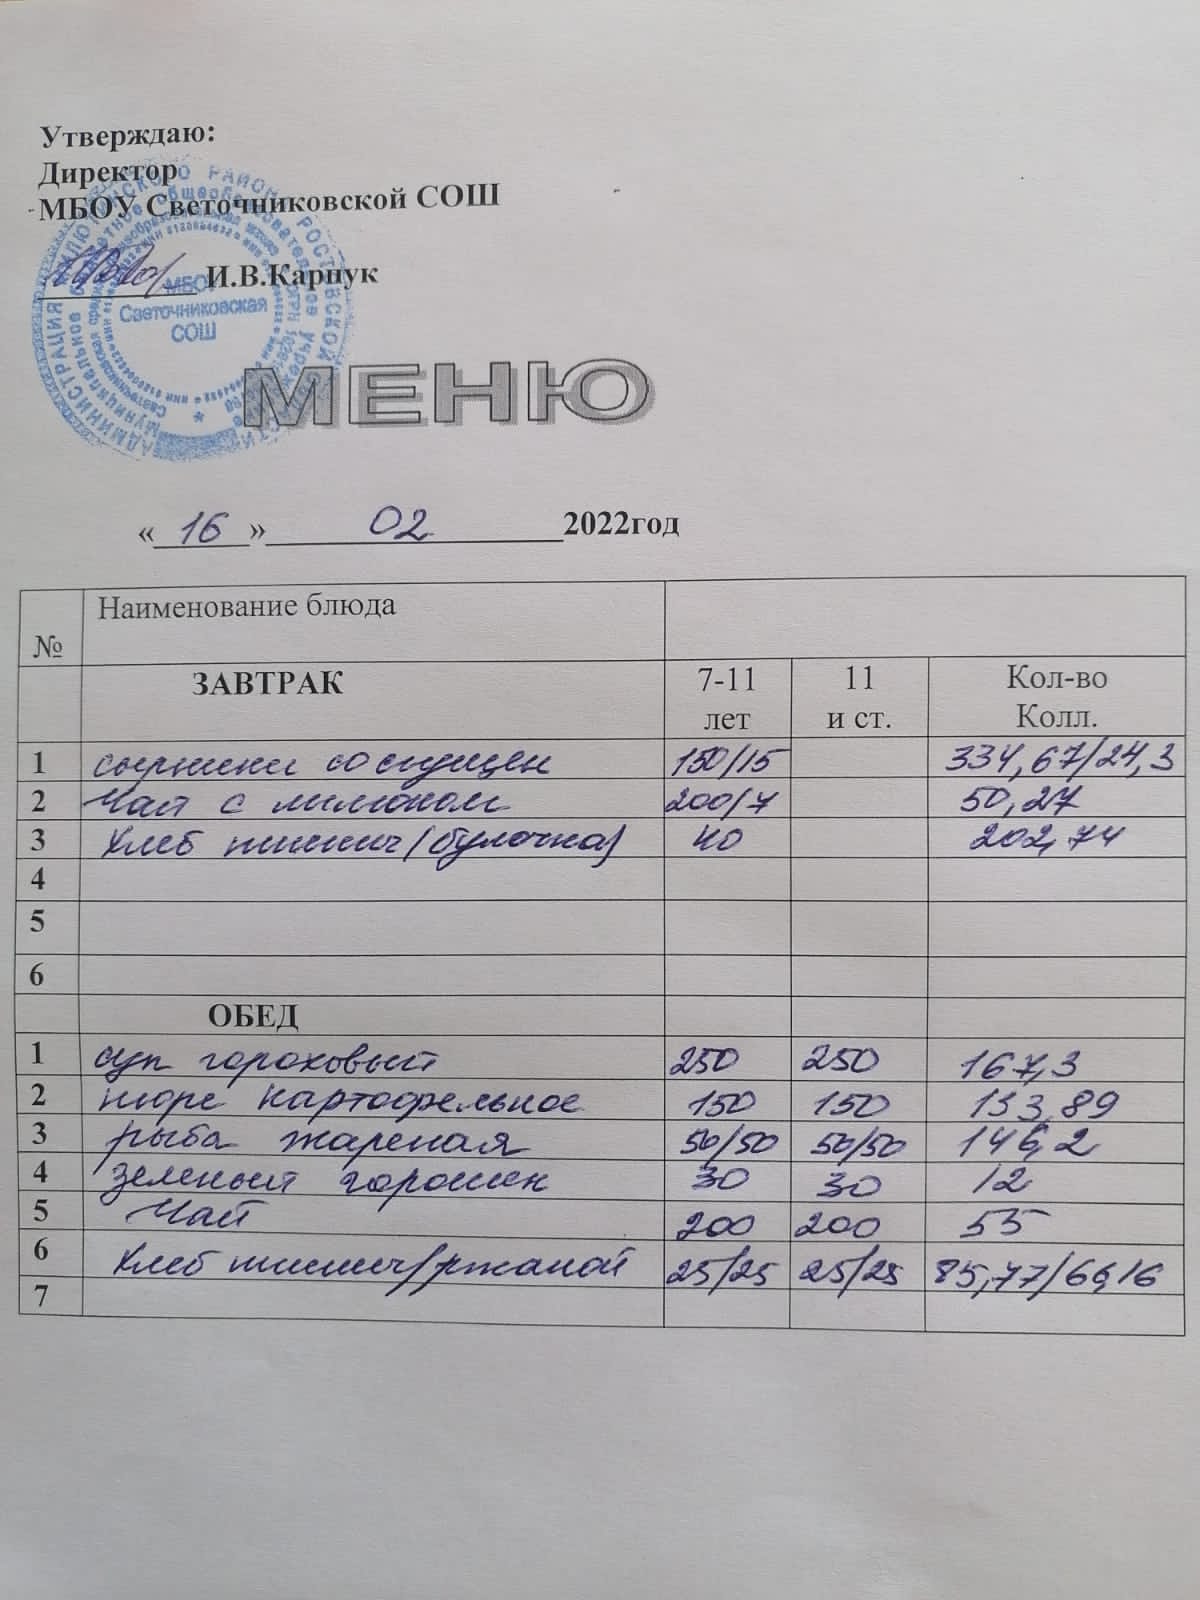 Утверждаю:
Директор
МБОУ Светочниковской СОШ
И.В.Карпук
МБОУ
Светочниковская
СОШ
МЕНЮ
« 16 » 02 2022год
№ Наименование блюда
ЗАВТРАК 7-11 лет 11 и ст. Кол-во Колл.
1 сырники со сгущен 150/15 334,67/24,3
2 Чай с лимоном 200/7 50,27
3 Хлеб пшенич(булочка) 40 202,74
4
5
6
ОБЕД
1 суп гороховый 250 250 167,3
2 пюре картофельное 150 150 133,89
3 рыба жареная 50/50 50/50 146,2
4 зеленый горошек 30 30 12
5 Чай 200 200 55
6 Хлеб пшенич/ржаной 25/25 25/25 85,77/66,16
7